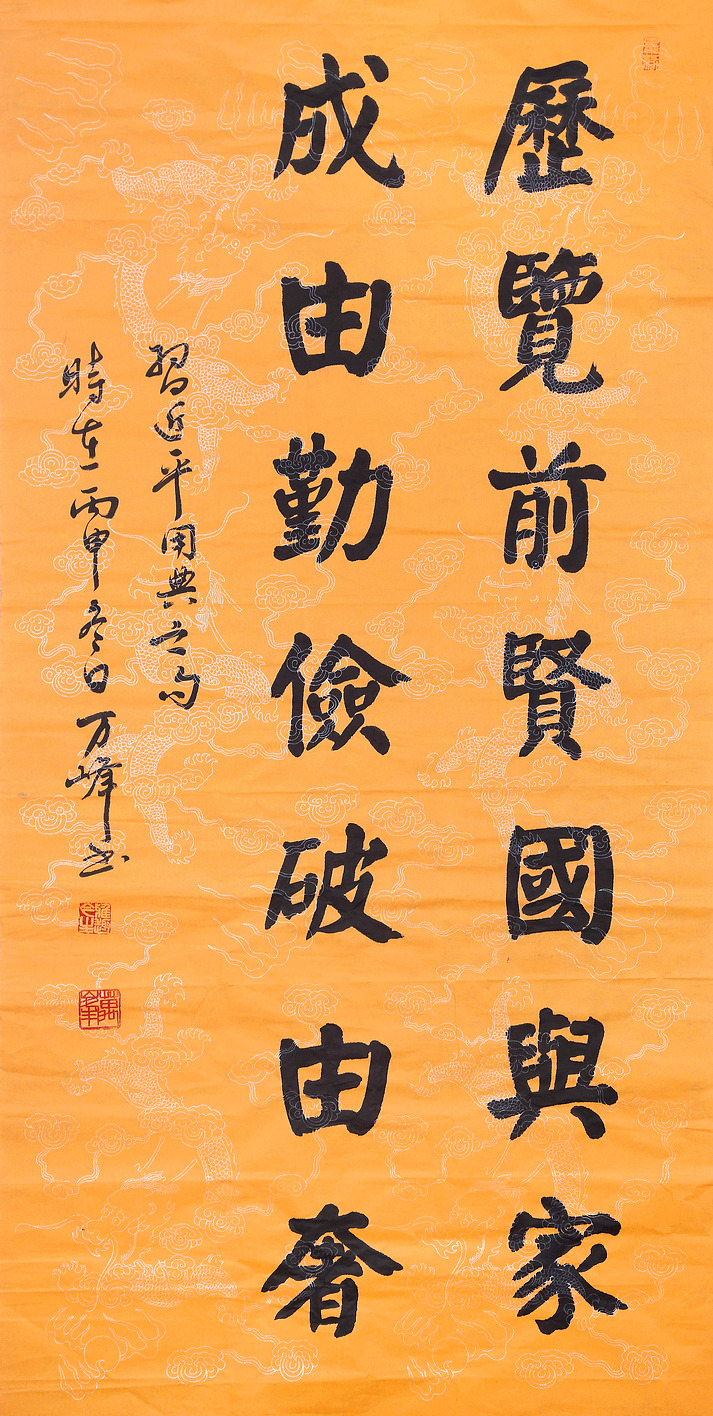 歷覽前賢國與家
成由勤儉破由奢
習近平用典之句
時在丙申冬日万峰书